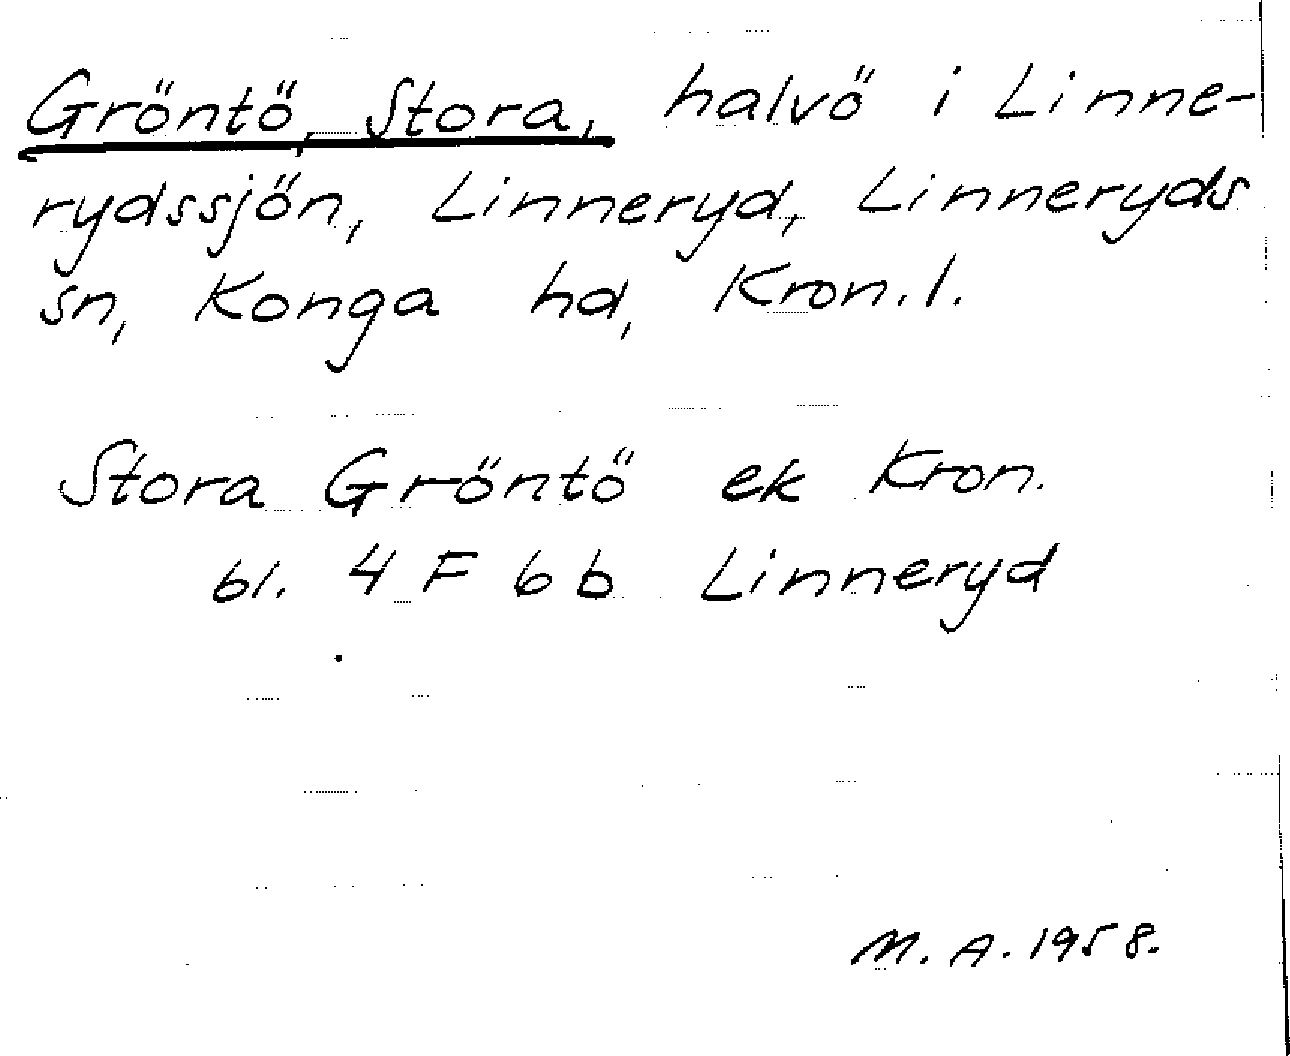 Gröntö, Stora, halvö i Linne-
rydssjön, Linneryd, Linneryds
sn, Konga hd, Kron.l.
Stora Gröntö ek Kron.
bl. 4 F 6 b Linneryd
M.A. 1958.